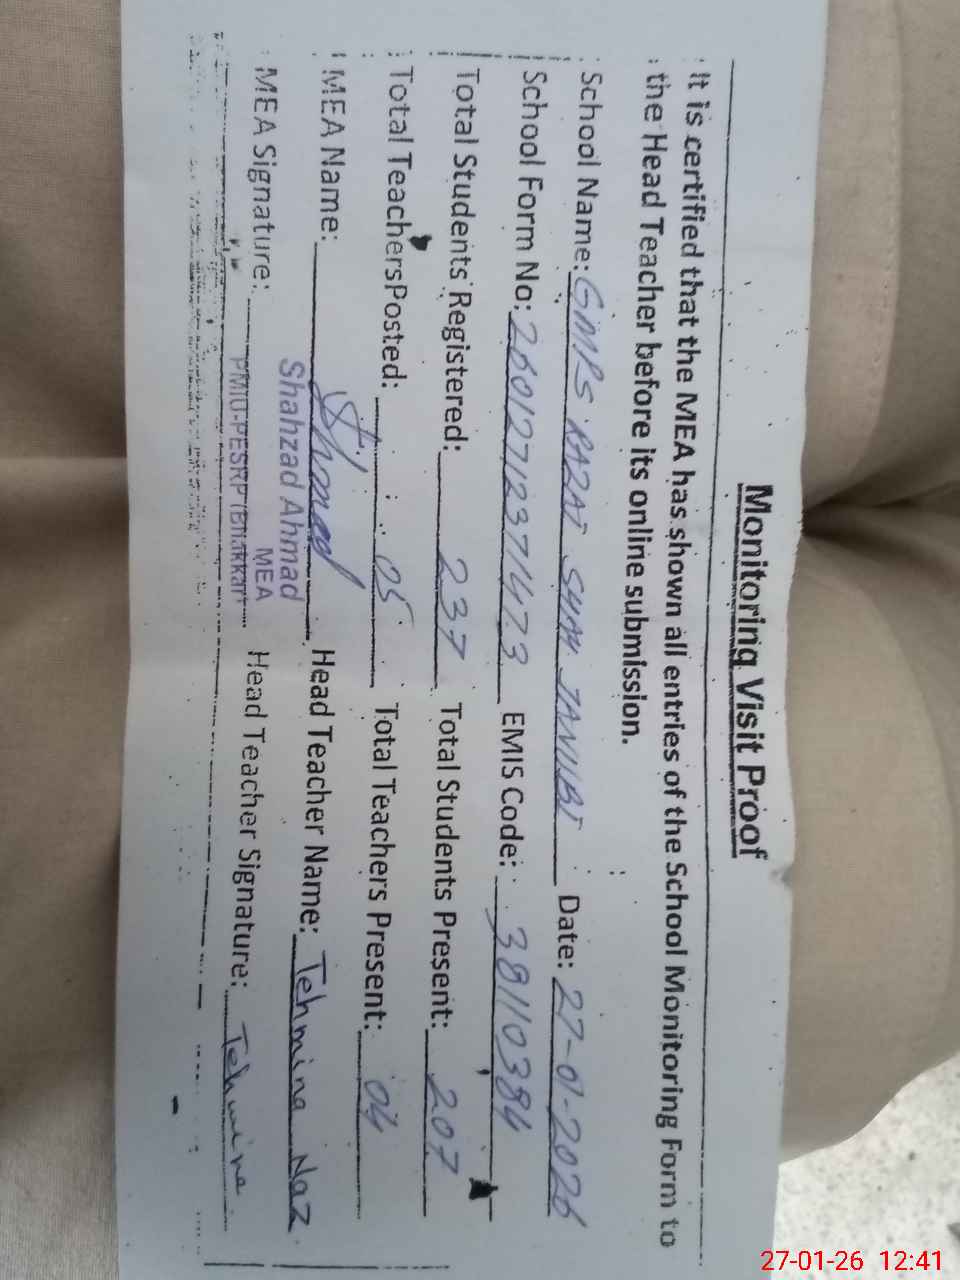 Monitoring Visit Proof
It is certified that the MEA has shown all entries of the School Monitoring Form to
the Head Teacher before its online submission.
School Name: GMPS RAZAI SHAH JANUBI Date: 27-01-2026
School Form No: 260127123711473 EMIS Code: 38110384
Total Students Registered: 237 Total Students Present: 207
Total Teachers Posted: 05 Total Teachers Present: 04
MEA Name: Ahmad Head Teacher Name: Tehmina Naz
Shahzad Ahmad
MEA
MEA Signature: PMIU-PESRP (Bhakkar) Head Teacher Signature: Tehmina
27-01-26 12:41